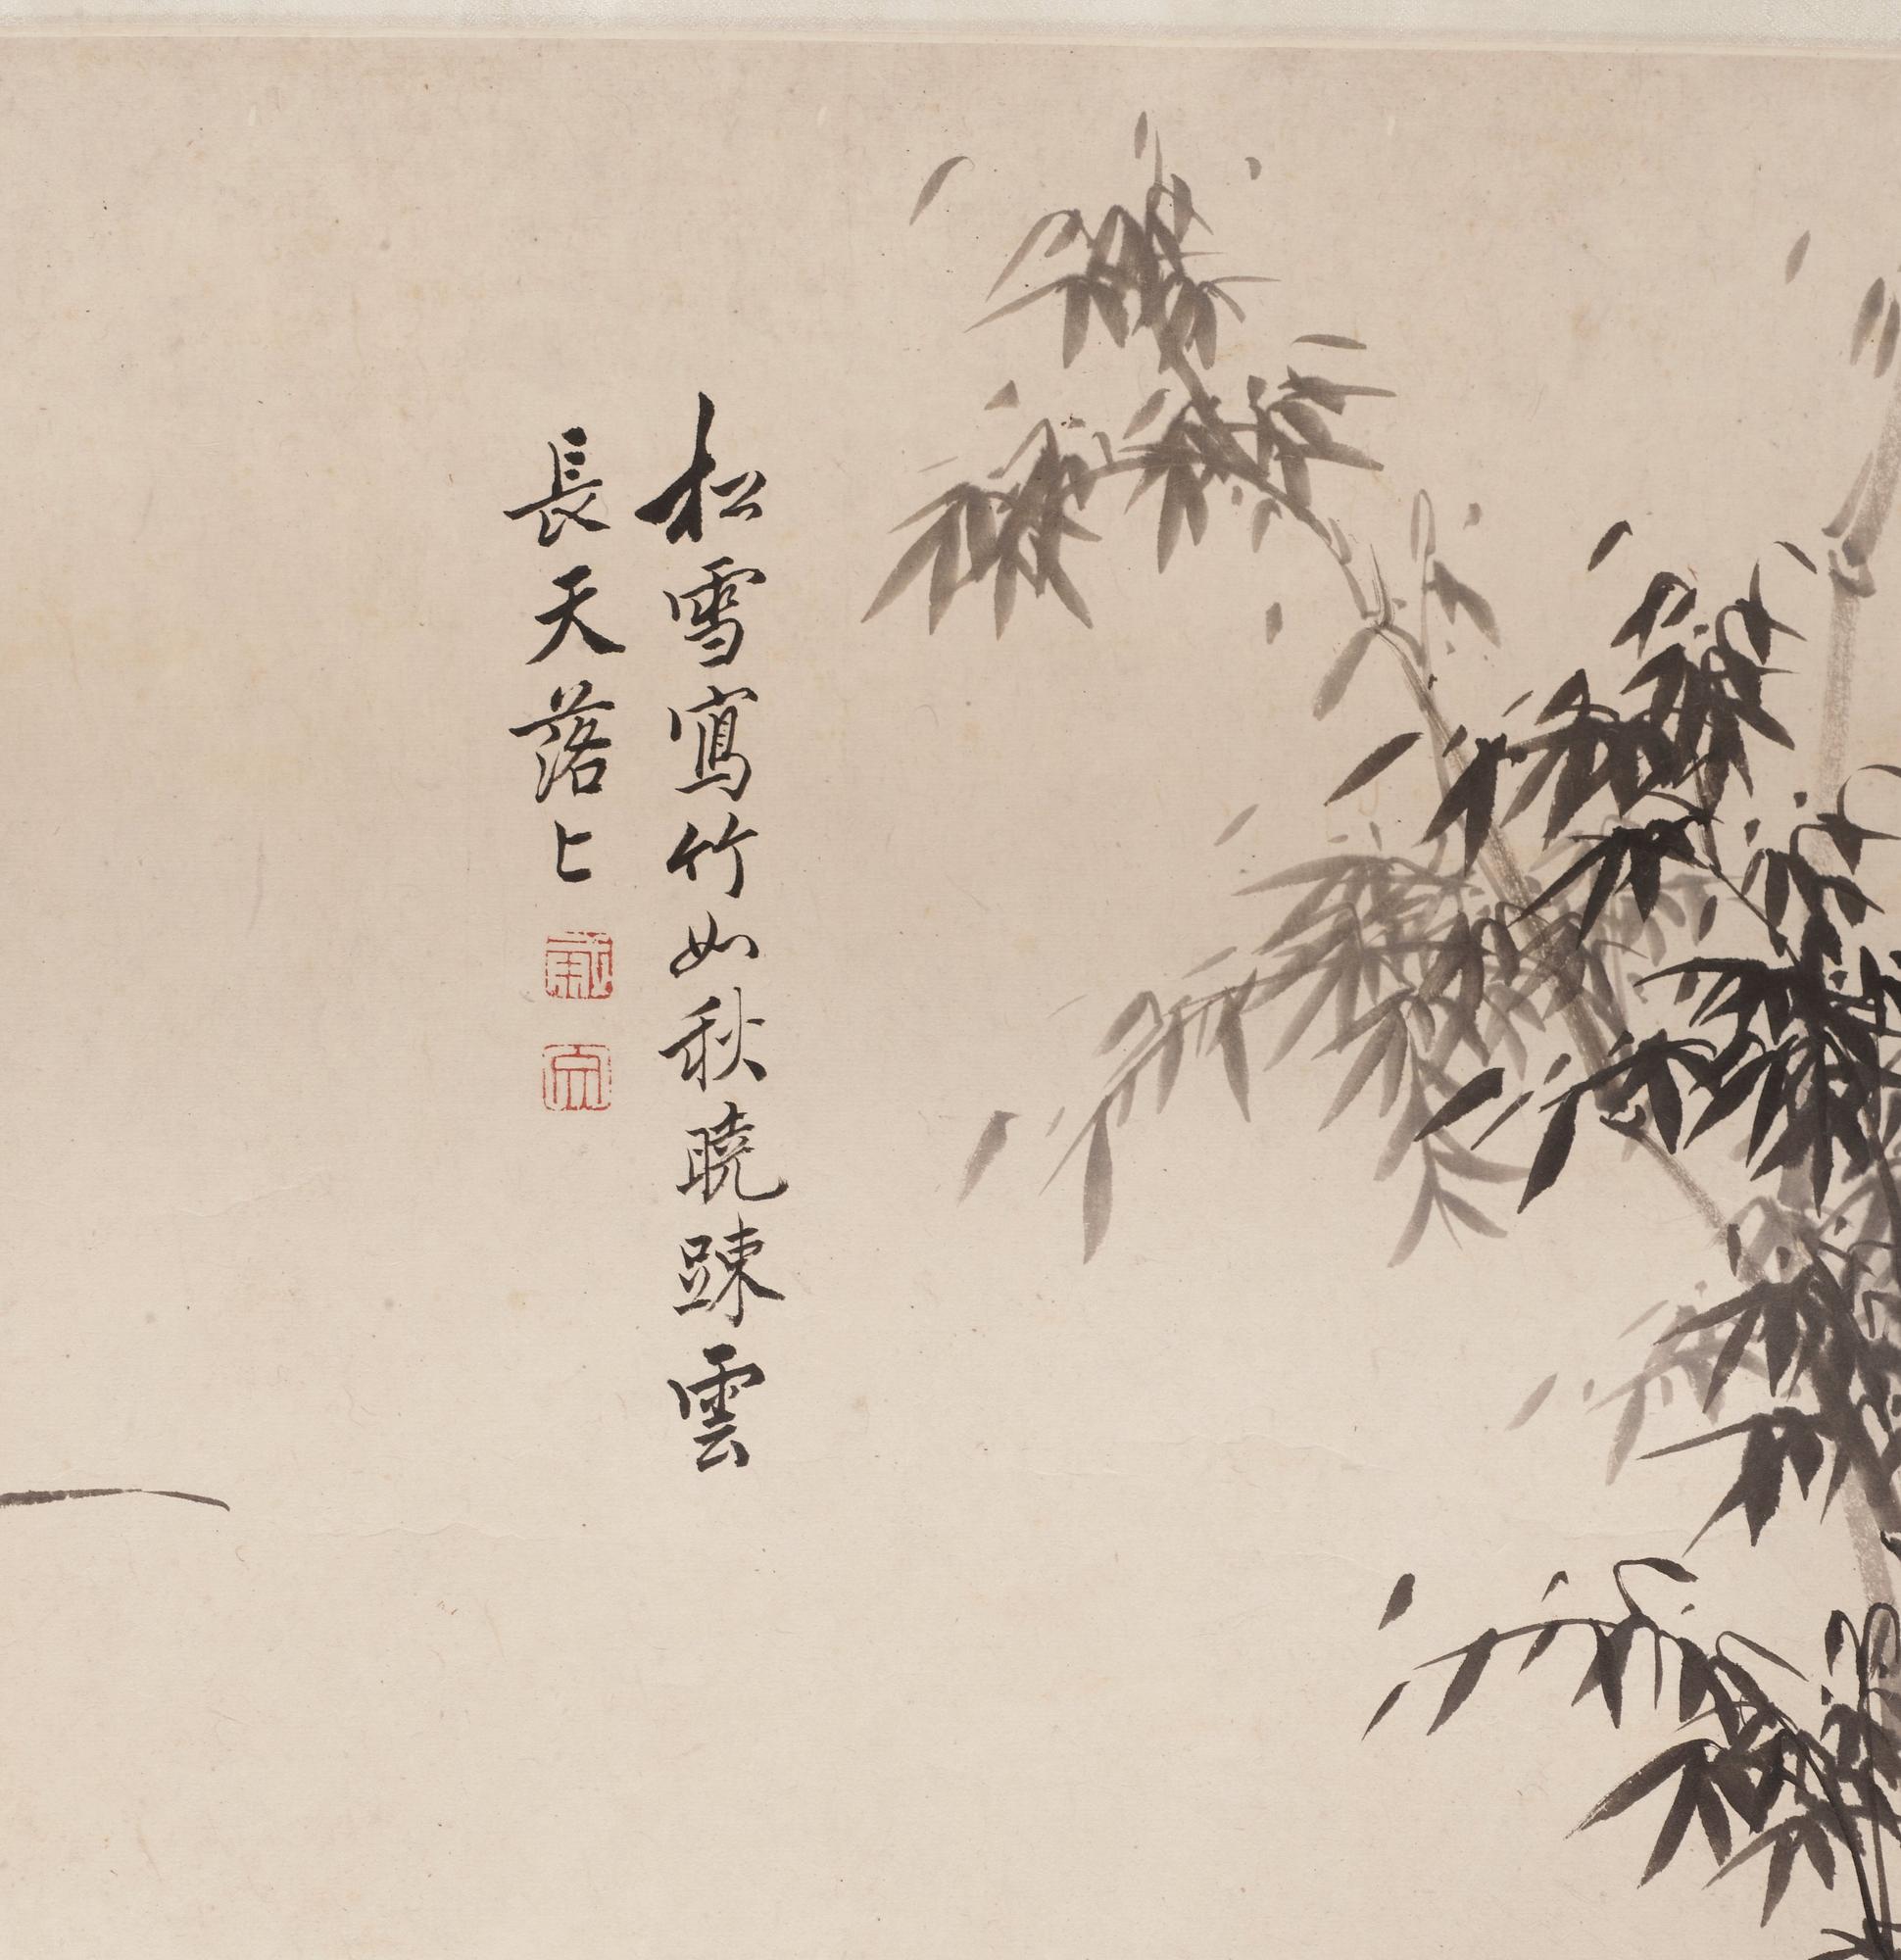 松雪寫竹如秋曉踈雲
長天落匕